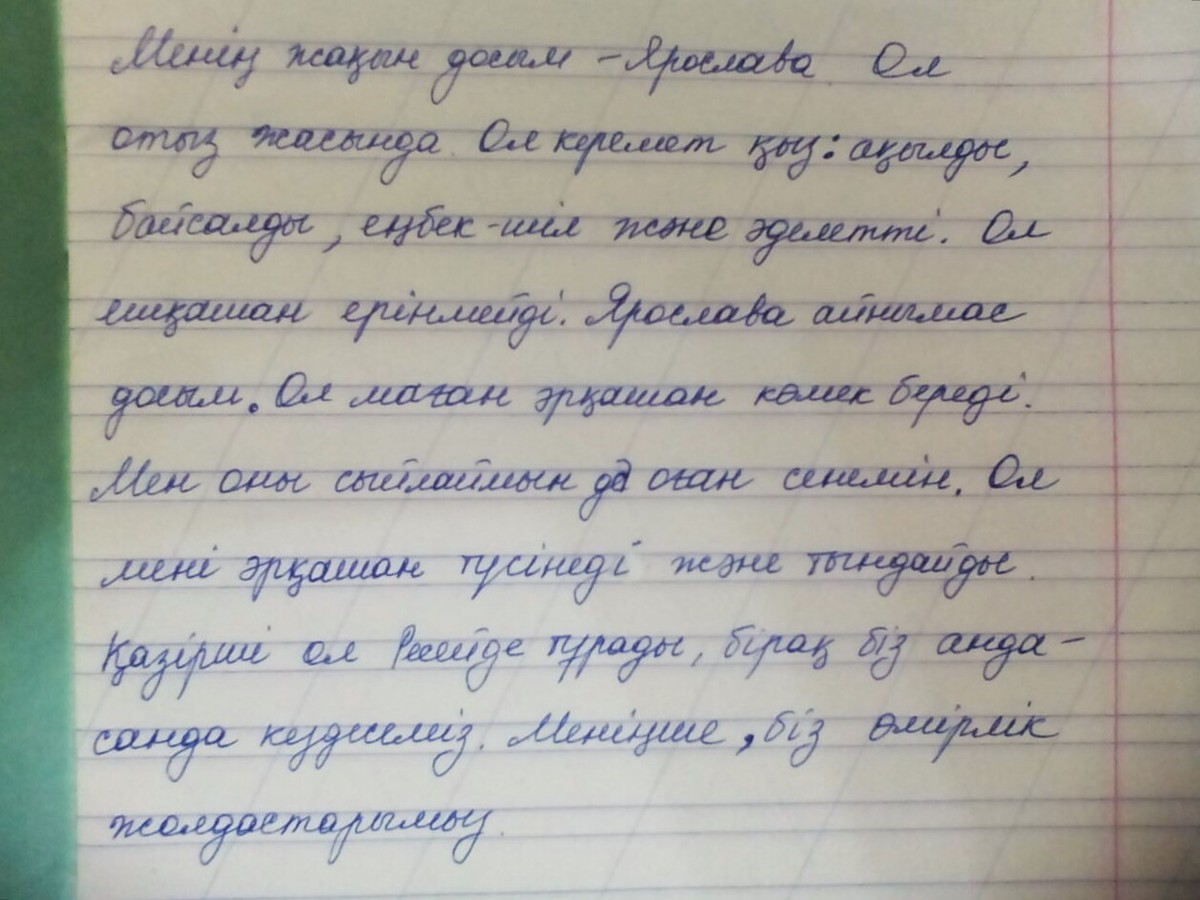 Менің жақын досым – Ярослава. Ол
отыз жасында. Ол керемет қыз: ақылды,
байсалды, еңбек-шіл және әділетті. Ол
ешқашан ерінмейді. Ярослава айнымас
досым. Ол маған әрқашан көмек береді.
Мен оны сыйлаймын да оған сенемін. Ол
мені әрқашан түсінеді және тындайды.
Қазірші ол Ресейде тұрады, бірақ біз анда-
санда кездесеміз. Меніңше, біз өмірлік
жолдастарымыз.